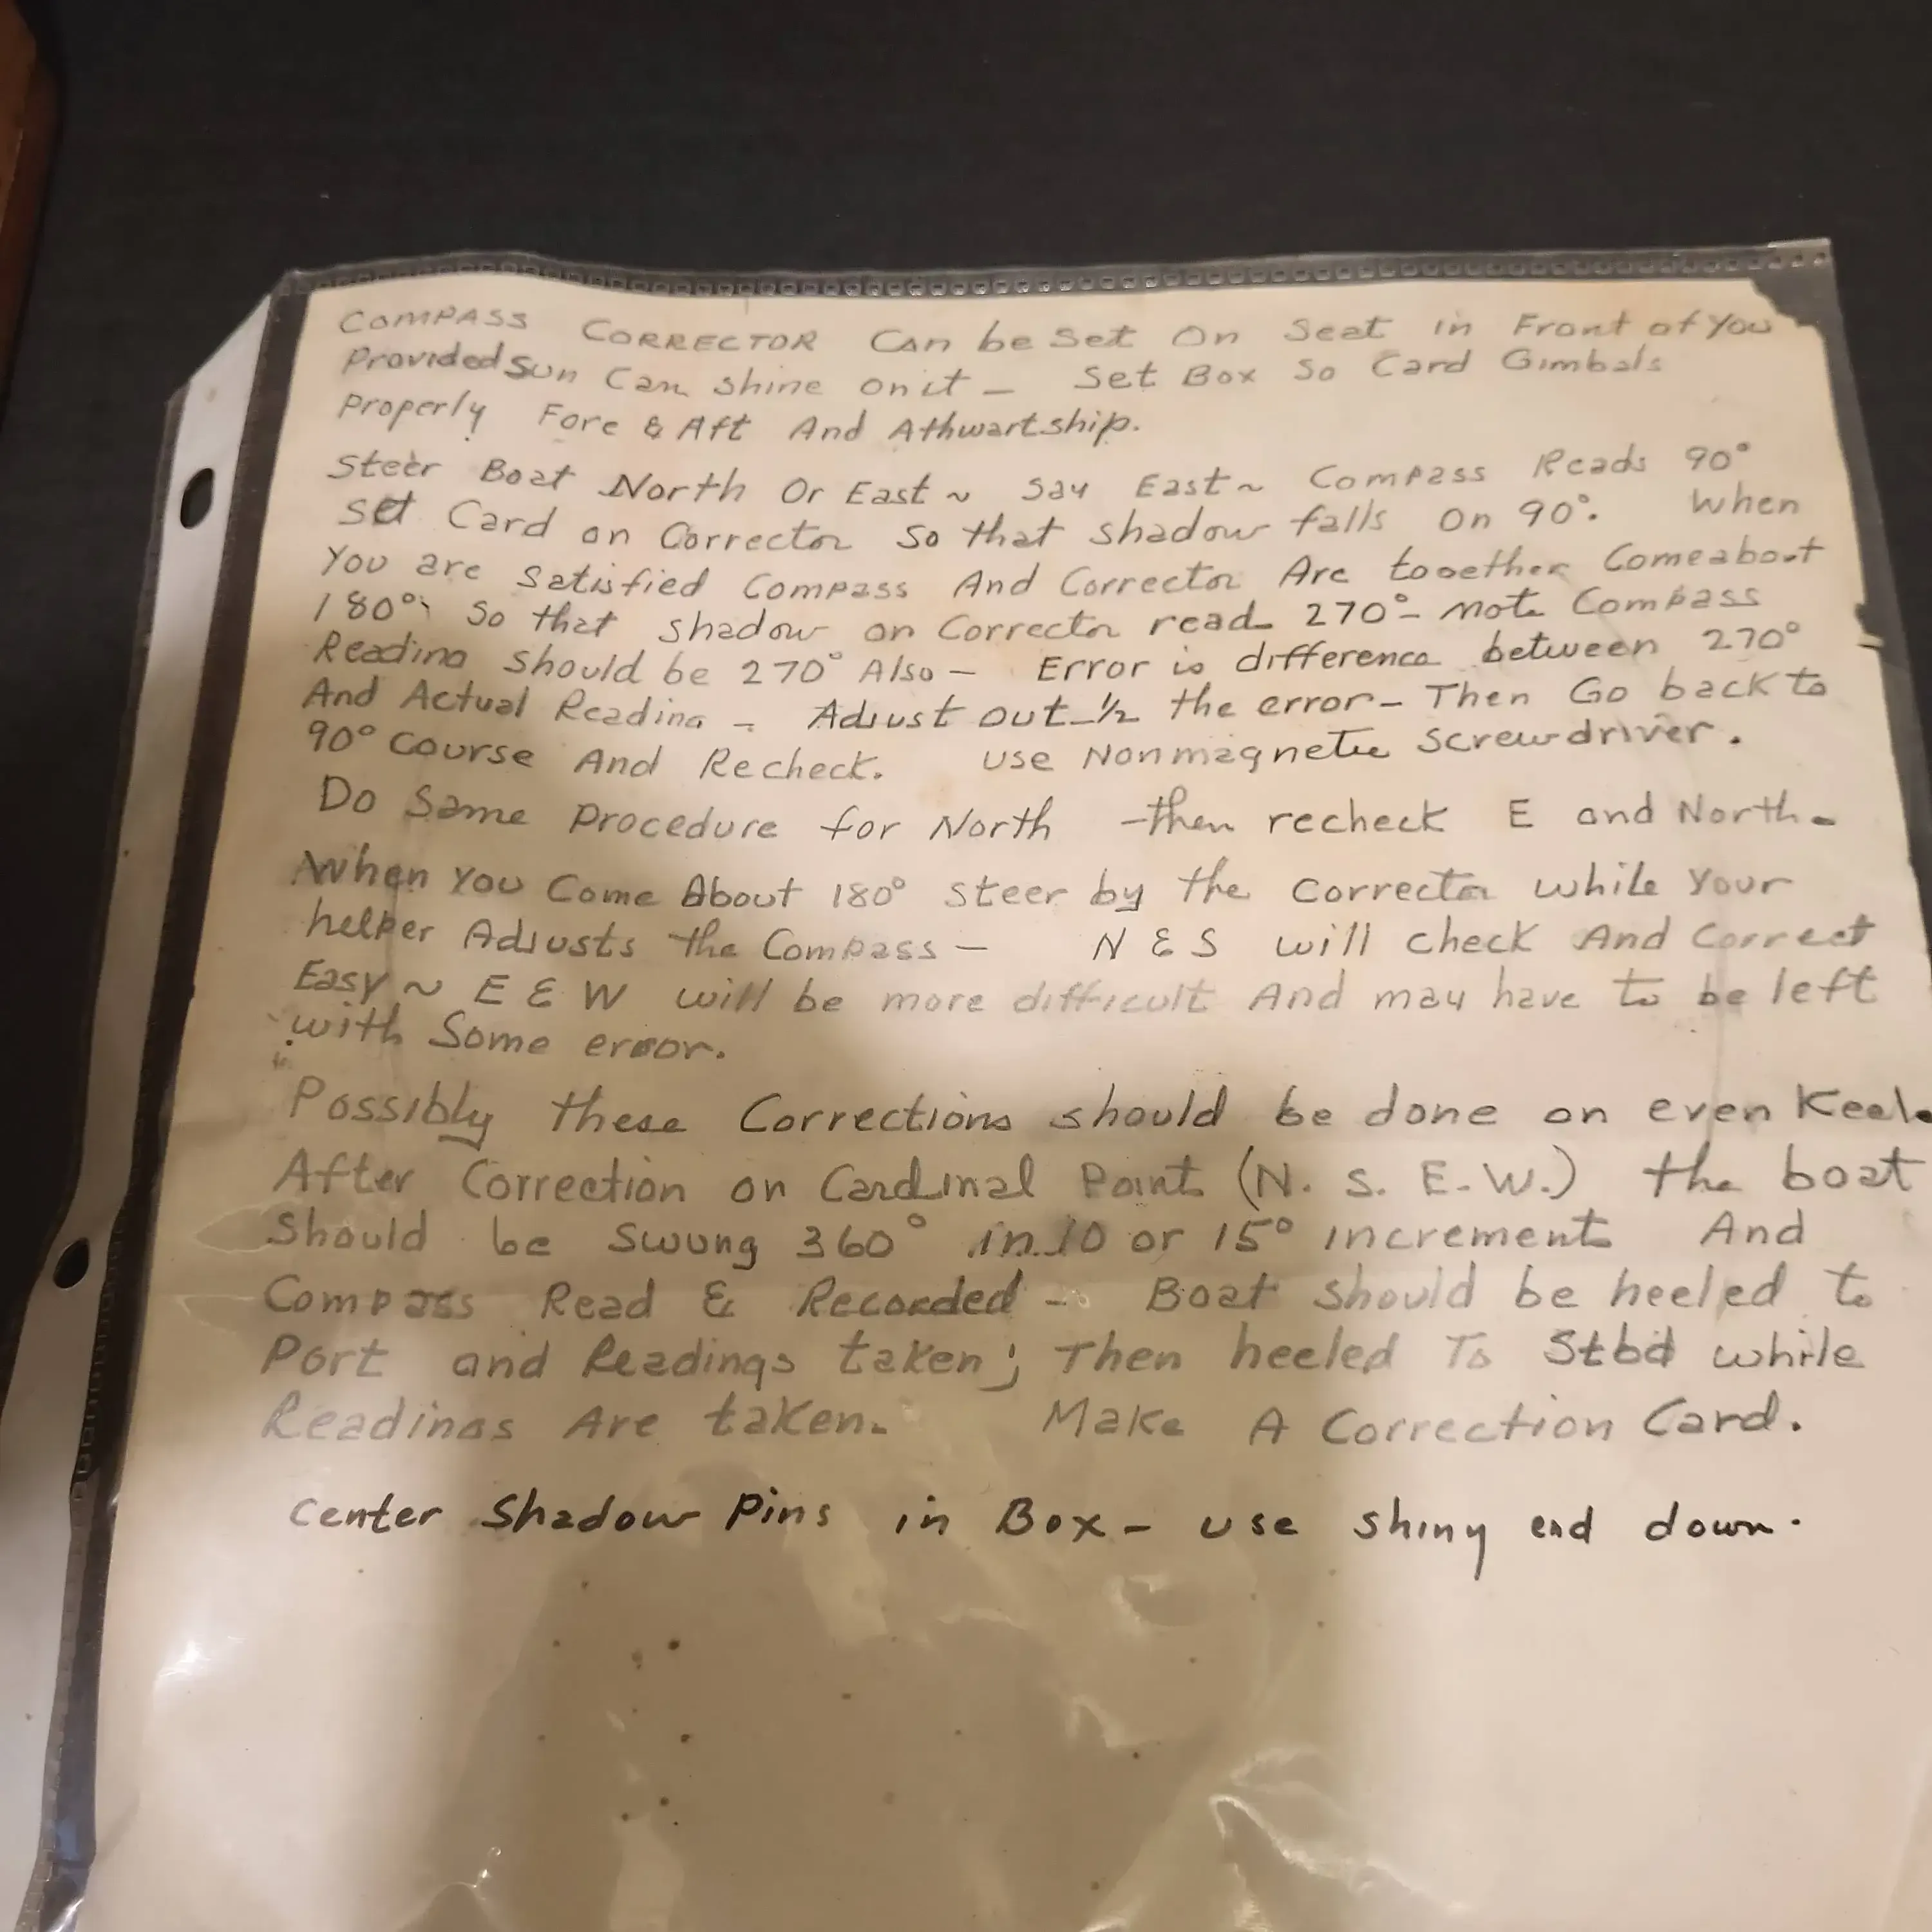 COMPASS CORRECTOR Can be Set On Seat in Front of You
Provided Sun Can shine on it – Set Box So Card Gimbals
Properly Fore & Aft And Athwartship.
Steer Boat North Or East ~ Say East ~ Compass Reads 90°
Set Card on Corrector So that shadow falls On 90°. When
You are Satisfied Compass And Corrector Are together Come about
180° So that shadow on Corrector read 270° – note Compass
Reading should be 270° Also – Error is difference between 270°
And Actual Reading – Adjust out ½ the error – Then Go back to
90° Course And Recheck. Use Nonmagnetic Screwdriver.
Do Same Procedure for North – then recheck E and North –
When You Come About 180° Steer by the Corrector while Your
helper Adjusts the Compass – N & S will check And Correct
Easy ~ E & W will be more difficult And may have to be left
with Some error.
Possibly these Corrections should be done on even Keel.
After Correction on Cardinal Point (N. S. E. W.) the boat
Should be Swung 360° in 10 or 15° increments And
Compass Read & Recorded – Boat Should be heeled to
Port and Readings taken; Then heeled To Stbd while
Readings Are taken. Make A Correction Card.
Center Shadow Pins in Box – use shiny end down.